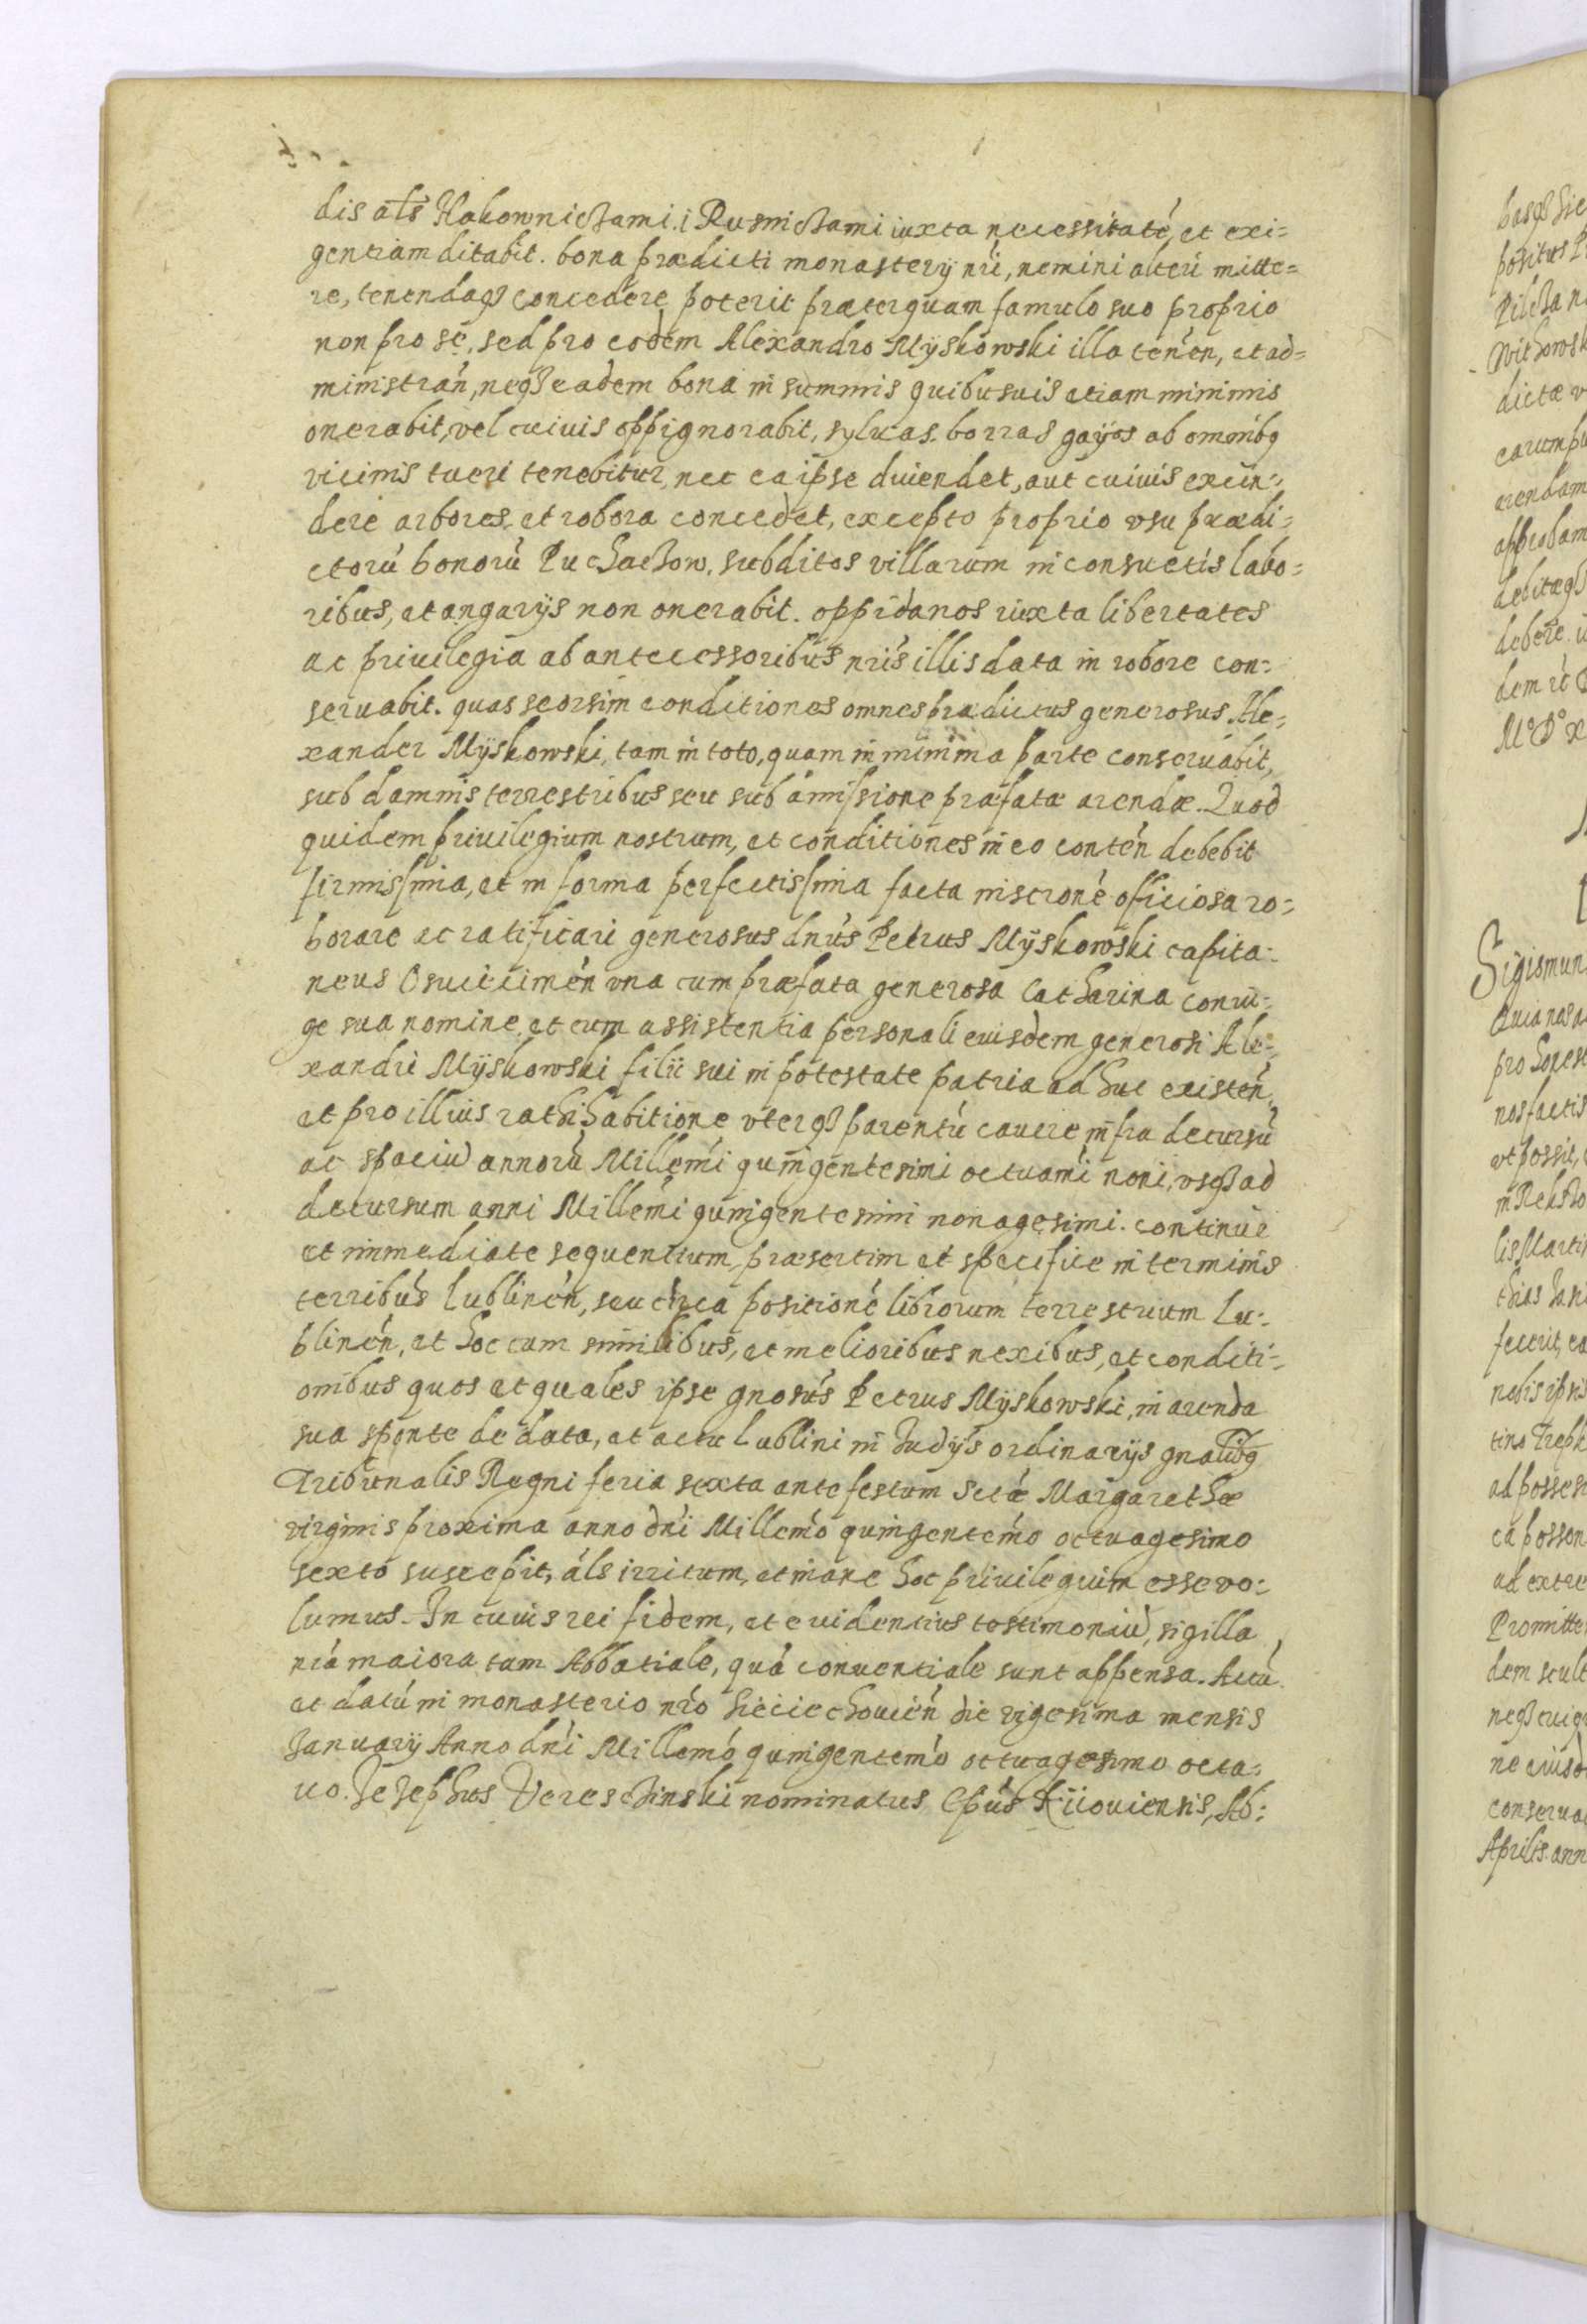 dis als Hakownicżami. i Rusnicżami iuxta necessitatē, et exi=
gentiam ditabit. bona prædicti monasterÿ nri, nemini alteri mitte=
re, tenendaqꝫ concedere poterit præterquam famulo suo proprio
non pro se, sed pro eodem Alexandro Mÿskowski illa tenen, et ad=
ministran, neqꝫ eadem bona in summis quibusuis etiam minimis
onerabit, vel cuiuis oppignorabit, syluas. borras gaÿos ab omnibꝫ
vicinis tueri tenebitur, nec ea ipse diuendet, aut cuiuis excin=
dere arbores, et robora concedet, excepto proprio vsu prædi=
ctorū bonorū Puchacżow. subditos villarum inconsuetis labo=
ribus, et angarÿs non onerabit. oppidanos iuxta libertates
ac priuilegia ab antecessoribus nris illis data in robore con=
seruabit. quas seorsim conditiones omnes prædictus generosus Ale=
xander Mÿskowski, tam in toto, quam in minima parte conseruabit,
sub damnis terrestribus seu sub amissione præfatæ arendæ. Quod
quidem priuilegium nostrum, et conditiones in eo conten debebit
firmissima, et in forma perfectissima facta inscronē officiosa ro=
borare ac ratificari generosus dnus Petrus Mÿskowski capita=
neus Osuiecimen vna cum præfata generosa Catharina coniu=
ge sua nomine et cum assistentia personali eiusdem generosi Ale=
xandri Mÿskowski filii sui in potestate patria adhuc existen,
et pro illius rathihabitione vterqꝫ parentū cauere infra decursū
ac spaciū annorū Millemi quingentesimi octuami noni, vsqꝫ ad
decursum anni Millemi quingentesimi nonagesimi. continue
et immediate sequentium, præsertim et specifice in terminis
terribus Lublinen, seu circa positionē librorum terrestrium Lu=
blinen, et hoc cum similibus, et melioribus nexibus, et conditi=
onibus quos et quales ipse gnosus Petrus Mÿskowski, in arenda
sua sponte de data, et actu Lublini in Judÿs ordinarÿs gnalibꝫ
Tribunalis Regni feria sexta ante festum Sctæ Margarethæ
virginis proxima anno dni Millemo quingentemo octuagesimo
sexto suscepit, als irritum, et inane hoc priuilegium esse vo=
lumus. In cuius rei fidem, et euidentius testimoniū, sigilla
nra maiora tam Abbatiale, quā conuentiale sunt appensa. Actū
et datū in monasterio nro Sieciechouien die vigesima mensis
Januarÿ Anno dni Millemo quingentemo octuagesimo octa=
uo. Jozephus Vereschinski nominatus Epus Kiiouiensis, Ab=